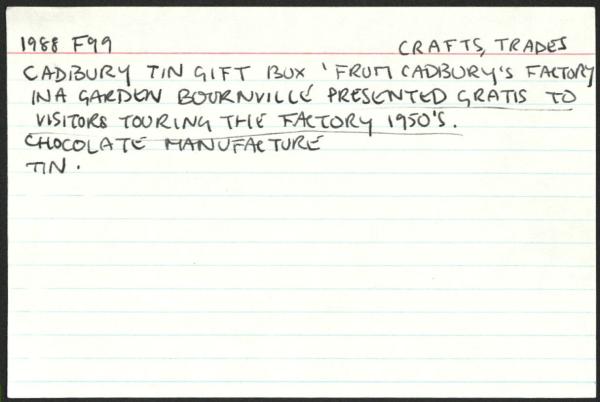 1988 F99 CRAFTS, TRADES
CADBURY TIN GIFT BOX 'FROM CADBURY'S FACTORY
IN A GARDEN BOURNVILLE PRESENTED GRATIS TO
VISITORS TOURING THE FACTORY 1950'S.
CHOCOLATE MANUFACTURE
TIN.